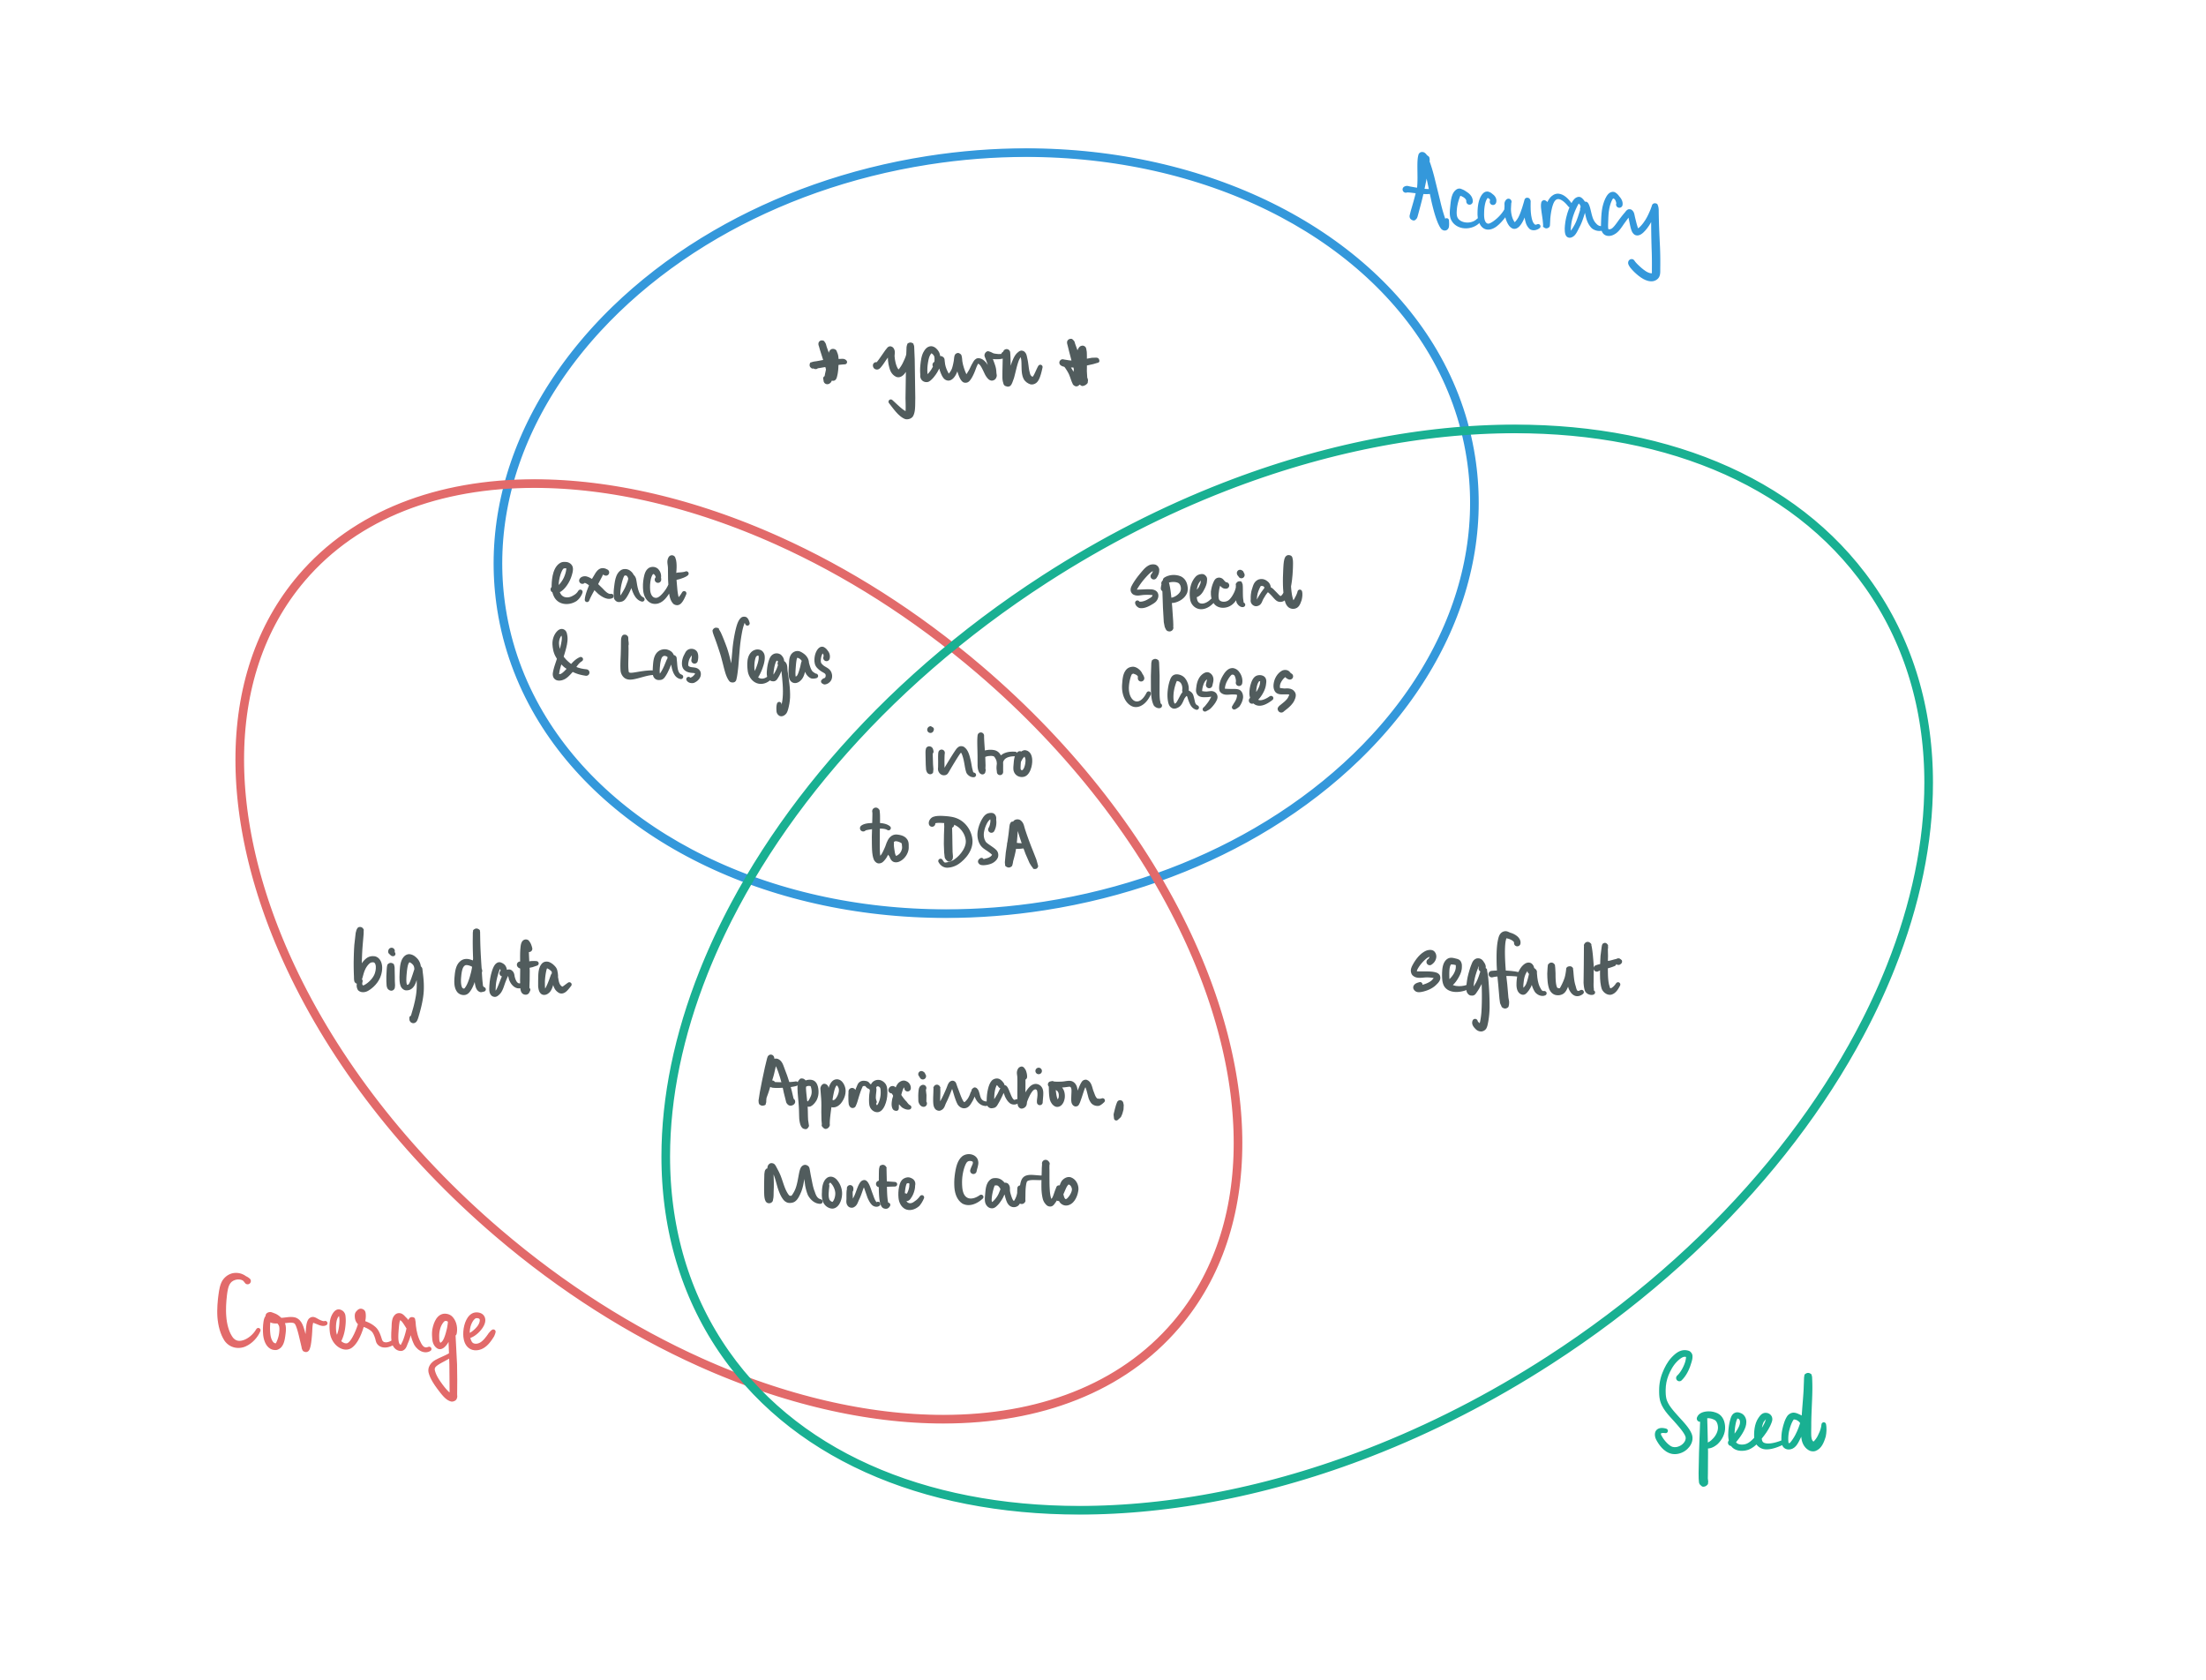 Accuracy
* yawn *
exact
& LasVegas
Special
classes
intro
to DSA
big data
segfault
Approximation,
Monte Carlo
Coverage
Speed